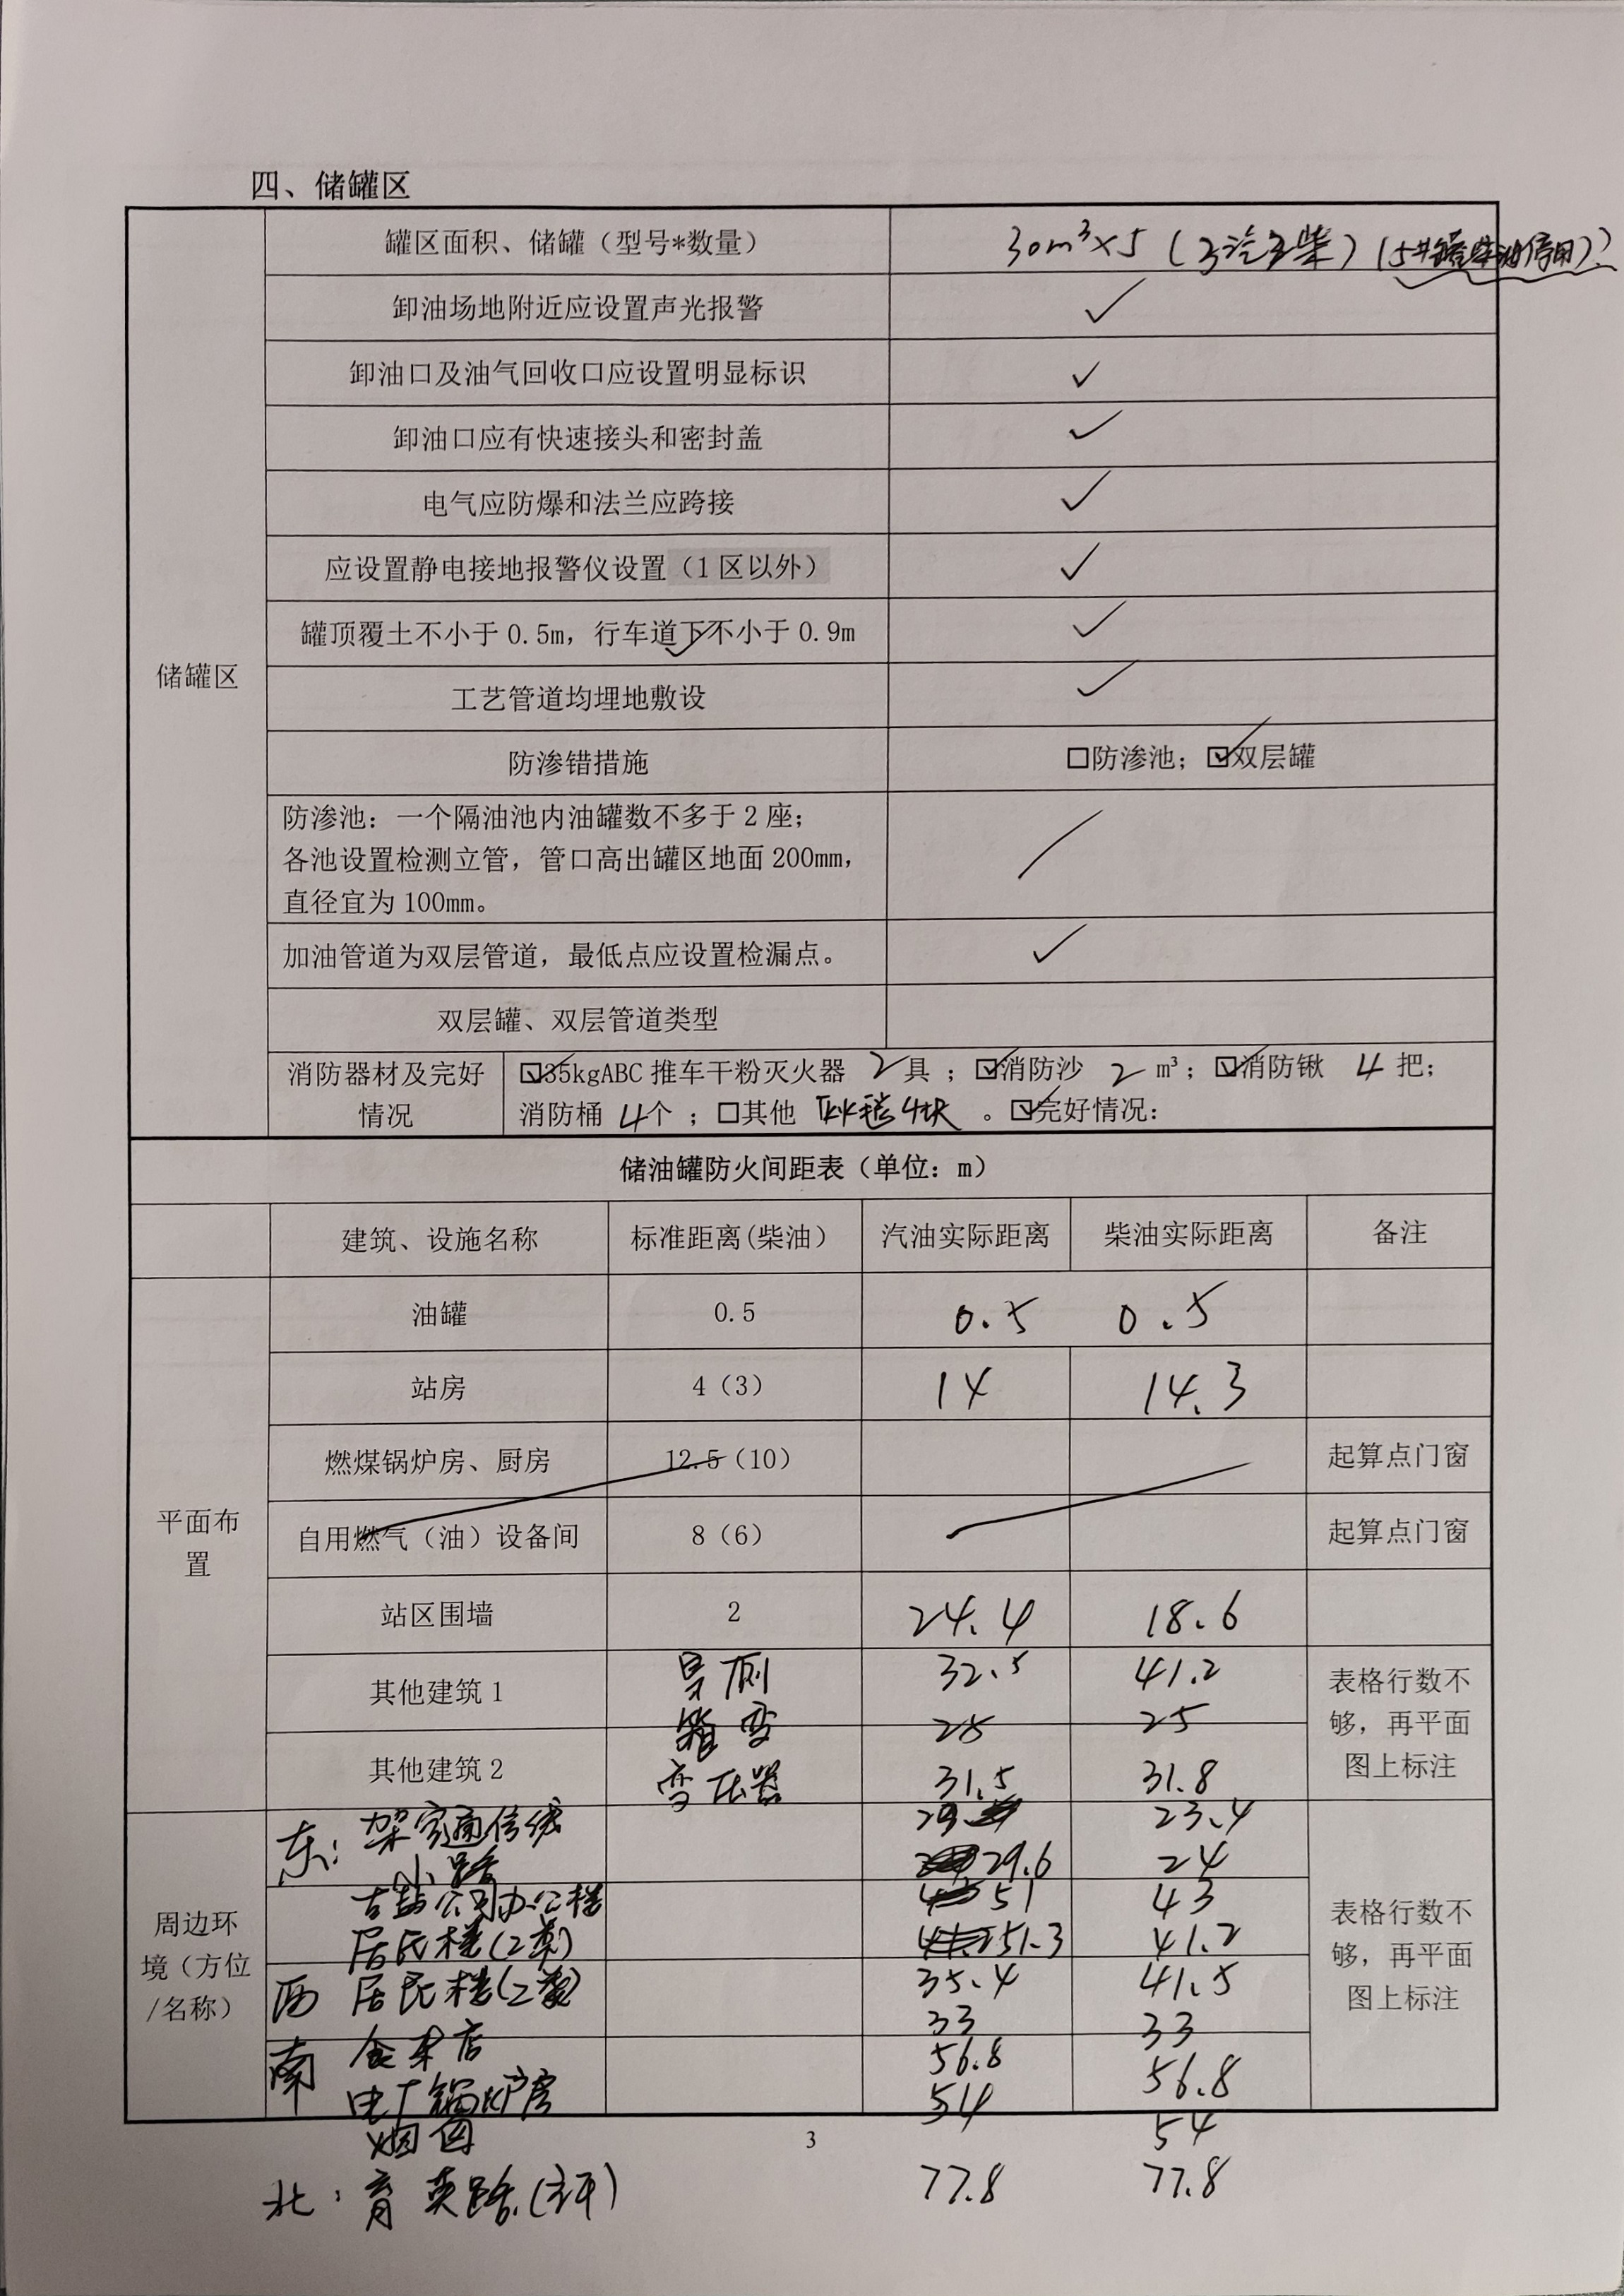 四、储罐区
储罐区
罐区面积、储罐（型号*数量） 30m³×5（3汽2柴）（5#罐柴油停用）
卸油场地附近应设置声光报警 ✓
卸油口及油气回收口应设置明显标识 ✓
卸油口应有快速接头和密封盖 ✓
电气应防爆和法兰应跨接 ✓
应设置静电接地报警仪设置（1区以外） ✓
罐顶覆土不小于0.5m，行车道下不小于0.9m ✓
工艺管道均埋地敷设 ✓
防渗错措施 □防渗池；☑双层罐
防渗池：一个隔油池内油罐数不多于2座；
各池设置检测立管，管口高出罐区地面200mm，
直径宜为100mm。
加油管道为双层管道，最低点应设置检漏点。 ✓
双层罐、双层管道类型
消防器材及完好情况
☑35kgABC推车干粉灭火器 2具；☑消防沙 2 m³；☑消防锹 4把；
消防桶 4个；□其他 灭火毯4块。☑完好情况：
储油罐防火间距表（单位：m）
建筑、设施名称 标准距离(柴油） 汽油实际距离 柴油实际距离 备注
平面布置
油罐 0.5 0.5 0.5
站房 4（3） 14 14.3
燃煤锅炉房、厨房 12.5（10） 起算点门窗
自用燃气（油）设备间 8（6） 起算点门窗
站区围墙 2 24.4 18.6
其他建筑1 32.5 41.2
箱变 25
其他建筑2 变压器 31.5 31.8
表格行数不够，再平面图上标注
周边环境（方位/名称）
东：架空通信线 23.4
小路 29.6 24
公司办公楼 51 43
居民楼(2类) 51.3 41.2
西 居民楼(2类) 35.4 41.5
33 33
南 56.8 56.8
电厂锅炉房 54 54
烟囱
表格行数不够，再平面图上标注
3
北：育英路 77.8 77.8